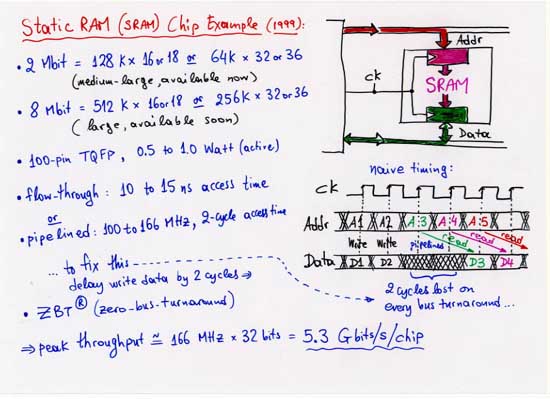 Static RAM (SRAM) Chip Example (1999):
• 2 Mbit = 128 K × 16 or 18 or 64 K × 32 or 36
(medium-large, available now)
• 8 Mbit = 512 K × 16 or 18 or 256 K × 32 or 36
(large, available soon)
• 100-pin TQFP, 0.5 to 1.0 Watt (active)
• flow-through: 10 to 15 ns access time
or
• pipelined: 100 to 166 MHz, 2-cycle access time
... to fix this
delay write data by 2 cycles ⇒
• ZBT® (zero-bus-turnaround)
⇒ peak throughput ≃ 166 MHz × 32 bits = 5.3 Gbits/s/chip
Addr
ck
SRAM
Data
naive timing:
ck
Addr A1 A2 A:3 A:4 A:5
write write pipelined read read read
Data D1 D2 D3 D4
2 cycles lost on
every bus turnaround...